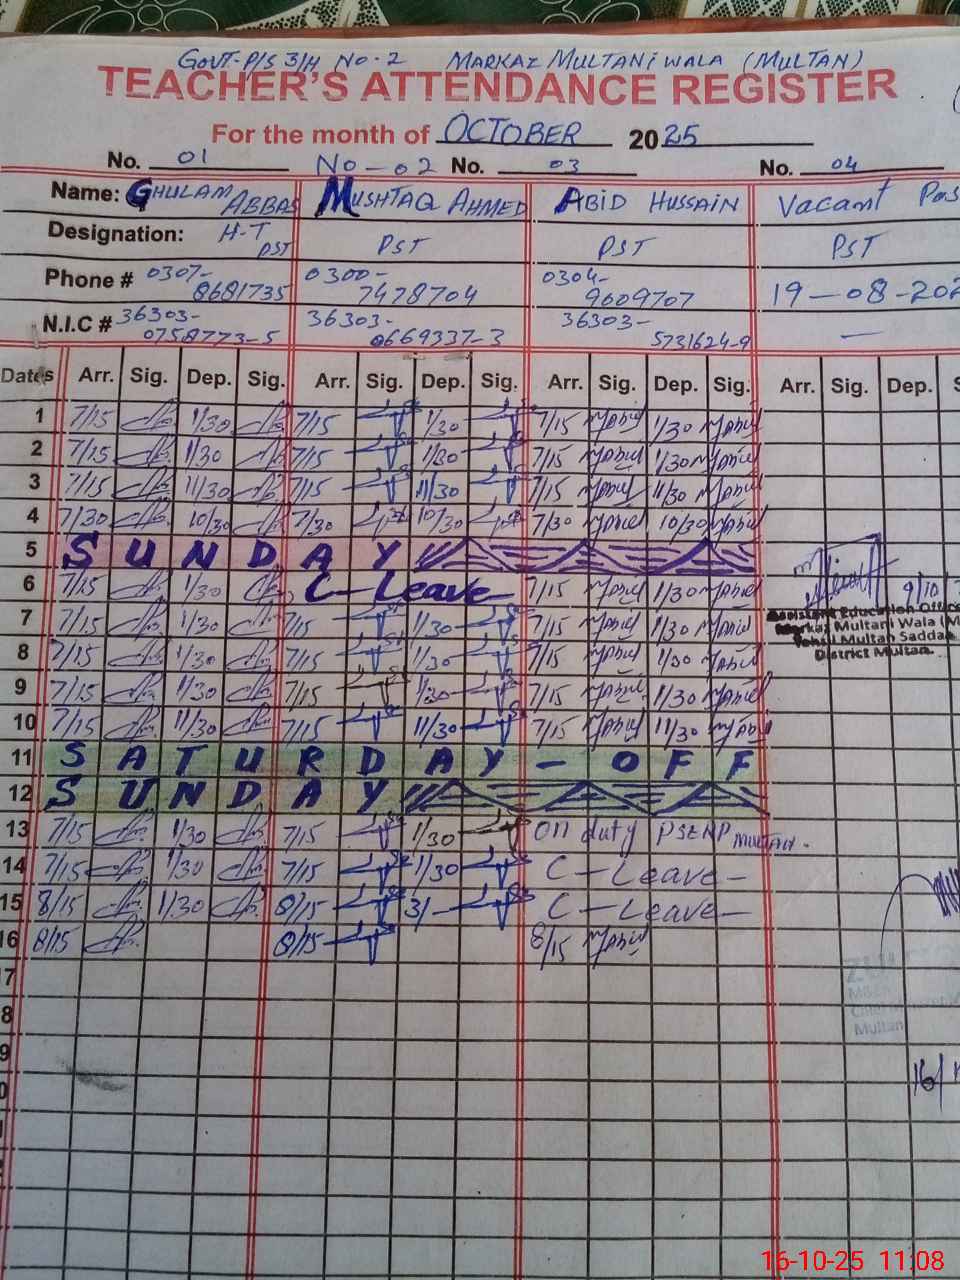 GOVT. P/S 3/H No-2 MARKAZ MULTANI WALA (MULTAN)
TEACHER'S ATTENDANCE REGISTER
For the month of OCTOBER 2025
No. 01 No-02 No. 03 No. 04
Name: GHULAM ABBAS MUSHTAQ AHMED ABID HUSSAIN Vacant
Designation: H-T PST PST PST PST
Phone # 0307-8681735 0300-7478704 0304-9609707 19-08-202
N.I.C # 36303-0758773-5 36303-0669337-3 36303-5731624-9 —
Dates Arr. Sig. Dep. Sig. Arr. Sig. Dep. Sig. Arr. Sig. Dep. Sig. Arr. Sig. Dep. S
1 7/15 1/30 7/15 1/30 7/15 1/30
2 7/15 1/30 7/15 1/30 7/15 1/30
3 7/15 11/30 7/15 11/30 7/15 11/30
4 7/30 10/30 7/30 10/30 7/30 10/30
5 SUNDAY
6 7/15 1/30 C-Leave 7/15 1/30
7 7/15 1/30 7/15 1/30 7/15 1/30
8 7/15 1/30 7/15 1/30 7/15 1/30
9 7/15 1/30 7/15 1/30 7/15 1/30
10 7/15 11/30 7/15 11/30 7/15 11/30
11 SATURDAY - OFF
12 SUNDAY
13 7/15 1/30 7/15 1/30 On duty MULTAN.
14 7/15 1/30 7/15 1/30 C-Leave-
15 8/15 1/30 8/15 3/- C-Leave-
16 8/15 8/15 8/15
17
8
9
0
9/10
Assistant Education Office
Markaz Multani Wala (M
Tehsil Multan Saddar
District Multan.
Multan
16/
16-10-25 11:08